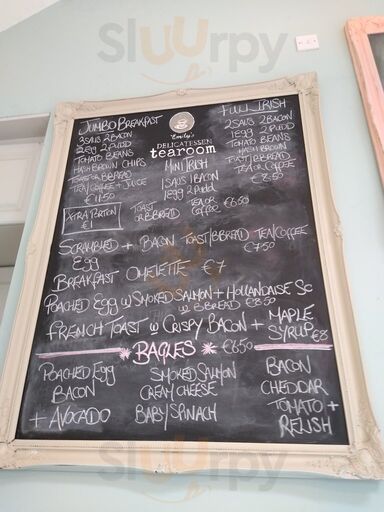 SlUurpy
JUMBO BREAKFAST
3 SAUS 2 BACON
2 EGG 2 PUDD
TOMATO BEANS
HASH BROWN CHIPS
TOAST OR B BREAD
TEA/COFFEE + JUICE
€11.50
XTRA PORTION
€1
Emily's
DELICATESSEN
tearoom
MINI IRISH
1 SAUS 1 BACON
1 EGG 2 PUDD
TOAST
OR B BREAD
TEA OR
COFFEE
€6.50
FULL IRISH
2 SAUS 2 BACON
1 EGG 2 PUDD
TOMATO BEANS
HASH BROWN
TOAST/B BREAD
TEA OR COFFEE
€8.50
SCRAMBLED + BACON TOAST/B BREAD TEA/COFFEE
EGG
€7.50
BREAKFAST OMELETTE €7
POACHED EGG W SMOKED SALMON + HOLLANDAISE SC
W B. BREAD €8.50
FRENCH TOAST W CRISPY BACON + MAPLE
SYRUP €8
BAGLES €6.50
POACHED EGG
BACON
+ AVOCADO
SMOKED SALMON
CREAM CHEESE
BABY SPINACH
BACON
CHEDDAR
TOMATO +
RELISH
SlUurpy